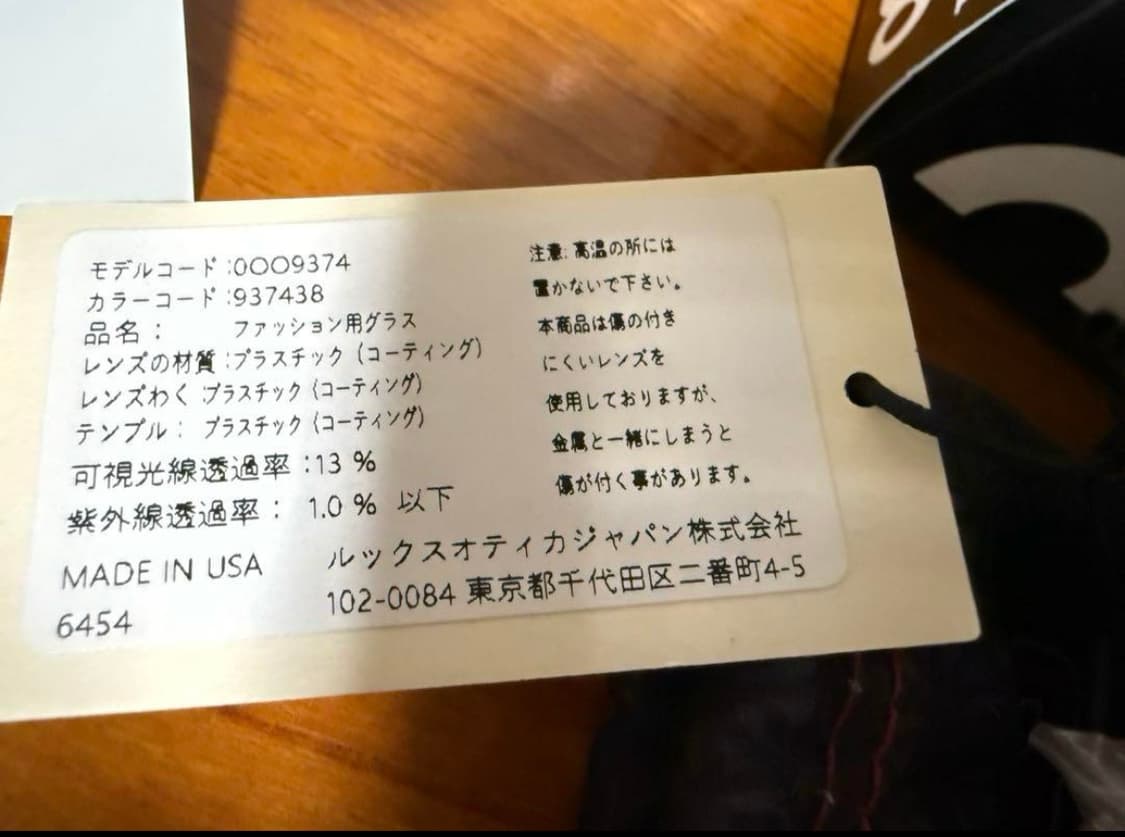 モデルコード :OOO9374
カラーコード :937438
品名： ファッション用グラス
レンズの材質 :プラスチック（コーティング）
レンズわく :プラスチック（コーティング）
テンプル： プラスチック（コーティング）
可視光線透過率 :13 %
紫外線透過率： 1.0 % 以下
MADE IN USA
6454
注意: 高温の所には
置かないで下さい。
本商品は傷の付き
にくいレンズを
使用しておりますが、
金属と一緒にしまうと
傷が付く事があります。
ルックスオティカジャパン株式会社
102-0084 東京都千代田区二番町4-5